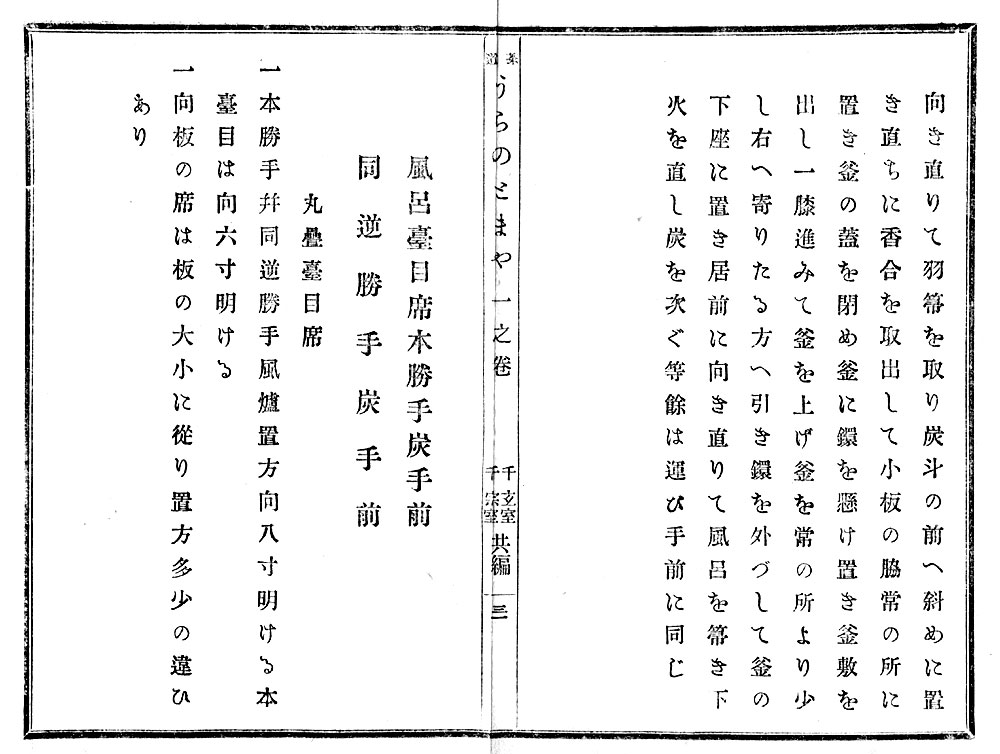 向き直りて羽箒を取り炭斗の前へ斜めに置
き直ちに香合を取出して小板の脇常の所に
置き釜の蓋を閉め釜に鐶を懸け置き釜敷を
出し一膝進みて釜を上げ釜を常の所より少
し右へ寄りたる方へ引き鐶を外づして釜の
下座に置き居前に向き直りて風呂を箒き下
火を直し炭を次ぐ等餘は運び手前に同じ
茶道
うらのとまや一之卷
千玄室
千宗室
共編
三
風呂臺目席本勝手炭手前
同逆勝手炭手前
丸疊臺目席
一本勝手幷同逆勝手風爐置方向八寸明ける本
臺目は向六寸明ける
一向板の席は板の大小に從り置方多少の違ひ
あり